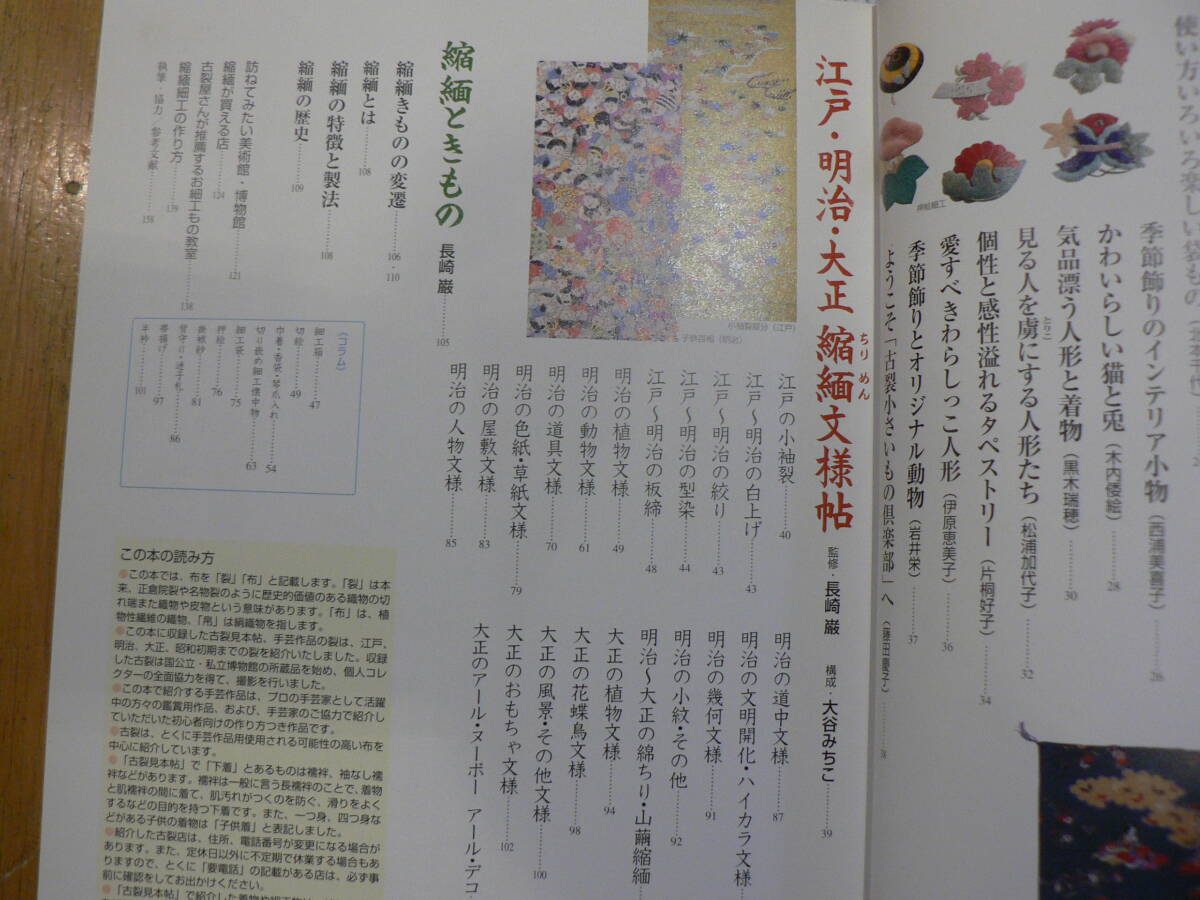 使い方いろいろ楽しい袋もの
季節飾りのインテリア小物（西浦美喜子）……26
かわいらしい猫と兎（木内倭絵）……28
気品漂う人形と着物（黒木瑞穂）……30
見る人を虜にする人形たち（松浦加代子）……32
とりこ
個性と感性溢れるタペストリー（片桐好子）……34
愛すべきわらしっこ人形（伊原恵美子）……36
季節飾りとオリジナル動物（岩井栄）……37
ようこそ「古裂小さいもの倶楽部」へ
38
押絵細工
江戸・明治・大正 縮緬文様帖
ちりめん
監修・長崎 巌
構成・大谷みちこ
39
小袖裂部分（江戸）
江戸の小袖裂……40
江戸〜明治の白上げ……43
江戸〜明治の絞り……43
江戸〜明治の型染……44
江戸〜明治の板締……48
明治の植物文様……49
明治の動物文様……61
明治の道具文様……70
明治の色紙・草紙文様……79
明治の屋敷文様……83
明治の人物文様……85
明治の道中文様……87
明治の文明開化・ハイカラ文様
明治の幾何文様……91
明治の小紋・その他……92
明治〜大正の綿ちり・山繭縮緬
大正の植物文様……94
大正の花蝶鳥文様……98
大正の風景・その他文様……100
大正のおもちゃ文様……102
大正のアール・ヌーボー アール・デコ
縮緬ときもの
長崎 巌……105
縮緬きものの変遷……106・110
縮緬とは……108
縮緬の特徴と製法……108
縮緬の歴史……109
訪ねてみたい美術館・博物館……121
縮緬が買える店……124
古裂屋さんが推薦するお細工もの教室……138
縮緬細工の作り方……139
執筆・協力／参考文献……158
〈コラム〉
細工箱……47
切絵……49
巾着・香袋・琴爪入れ……54
切り嵌め細工懐中物……63
細工袋……75
押絵……76
袱紗……81
背守り・迷子札……86
帯揚げ……97
半衿……101
この本の読み方
●この本では、布を「裂」「布」と記載します。「裂」は本
来、正倉院裂や名物裂のように歴史的価値のある織物の切
れ端また織物や皮物という意味があります。「布」は、植
物性繊維の織物、「帛」は絹織物を指します。
●この本に収録した古裂見本帖、手芸作品の裂は、江戸、
明治、大正、昭和初期までの裂を紹介いたしました。収録
した古裂は国公立・私立博物館の所蔵品を始め、個人コレ
クターの全面協力を得て、撮影を行いました。
●この本で紹介する手芸作品は、プロの手芸家として活躍
中の方々の鑑賞用作品、および、手芸家のご協力で紹介し
ていただいた初心者向けの作り方つき作品です。
●古裂は、とくに手芸作品用使用される可能性の高い布を
中心に紹介しています。
●「古裂見本帖」で「下着」とあるものは襦袢、袖なし襦
袢などがあります。襦袢は一般に言う長襦袢のことで、着物
と肌襦袢の間に着て、肌汚れがつくのを防ぐ、滑りをよく
するなどの目的を持つ下着です。また、一つ身、四つ身な
どがある子供の着物は「子供着」と表記しました。
●紹介した古裂店は、住所、電話番号が変更になる場合が
あります。また、定休日以外に不定期で休業する場合もあ
りますので、とくに「要電話」の記載がある店は、必ず事
前に確認をしてお出かけください。
●「古裂見本帖」で紹介した着物や